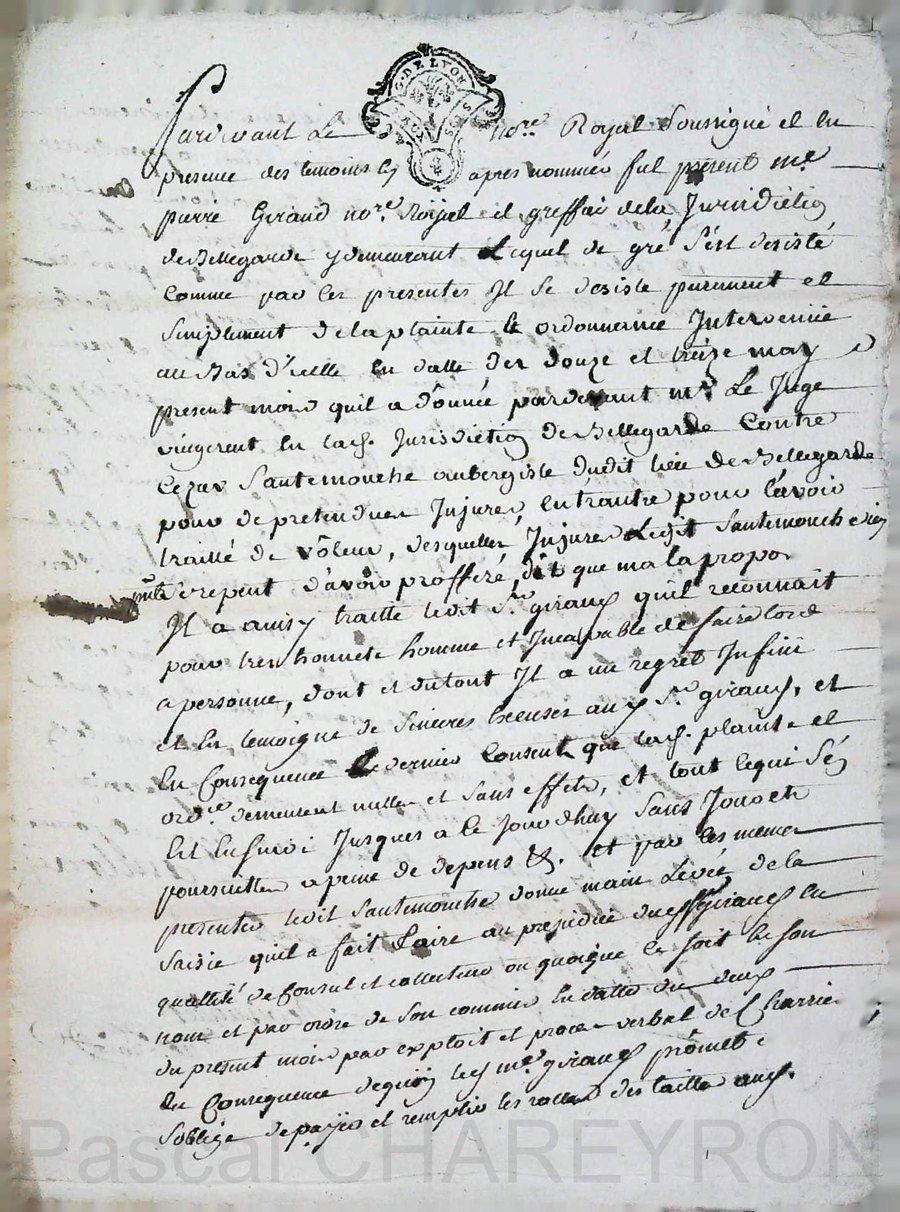 G. DE LYON
Pardevant Le no.re Royal Soussigné et en
presence des temoins cy apres nommés fut present me
pierre Giraud no.re Royal et greffier dela Jurisdiction
de Bellegarde y demeurant Lequel de gré s'est desisté
comme par ces presentes Il se desiste purement et
simplement dela plainte & ordonnance Intervenüe
au Bas d'icelle en datte des douze et treize may
present mois quil a donnée pardevant mr Le Juge
en lad. Jurisdiction de Bellegarde Contre
Cezar Santemouche aubergiste dudit lieu de Bellegarde
pour de pretendues Injures, entrautre pour l'avoir
traitté de voleur, desquelles Injures Ledit Santemouche
se repent d'avoir profferé, dit que mal apropos
Il a ainsy traitté ledit Sr giraud quil reconnait
pour tres honnete homme et Incapable de faire tord
a personne, dont et du tout Il a un regret Infini
et en temoigne de sinceres excuses aud. Sr giraud, et
en Consequence Ce dernier Consent que lad. plainte et
ord.ce demeurent nulles et sans effets, et tout ce qui s'en
est ensuivi Jusques a ce jourdhuy sans
poursuittes a peine de depens &. et par les memes
presentes ledit Santemouche donne main Levée de la
saisie quil a fait faire au prejudice dud. giraud en
quallité de Consul et collecteur ou quoique ce soit en son
nom et par ordre de son commis en datte du deux
du present mois par exploit et procès verbal de Charrie
en Consequence dequoy led. me giraud promet &
soblige de payer et remplir les rolles des tailles aud.
Pascal CHAREYRON